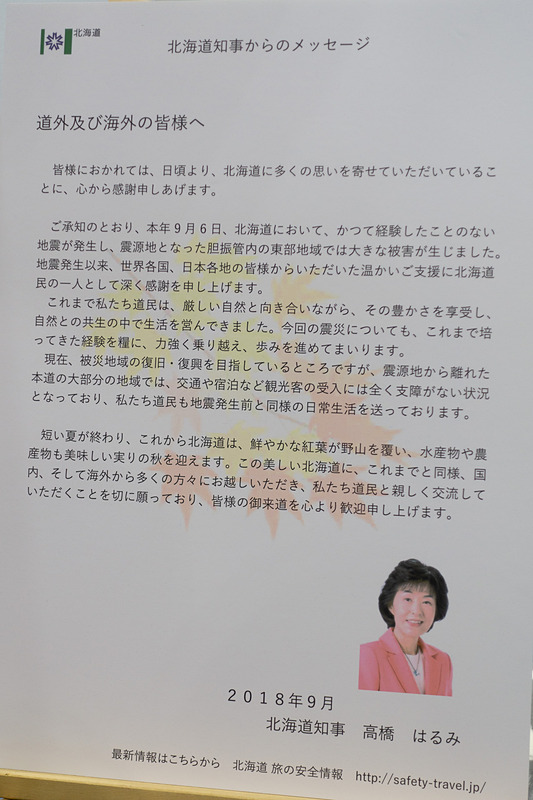 北海道
北海道知事からのメッセージ
道外及び海外の皆様へ
皆様におかれては、日頃より、北海道に多くの思いを寄せていただいているこ
とに、心から感謝申しあげます。
ご承知のとおり、本年９月６日、北海道において、かつて経験したことのない
地震が発生し、震源地となった胆振管内の東部地域では大きな被害が生じました。
地震発生以来、世界各国、日本各地の皆様からいただいた温かいご支援に北海道
民の一人として深く感謝を申し上げます。
これまで私たち道民は、厳しい自然と向き合いながら、その豊かさを享受し、
自然との共生の中で生活を営んできました。今回の震災についても、これまで培
ってきた経験を糧に、力強く乗り越え、歩みを進めてまいります。
現在、被災地域の復旧・復興を目指しているところですが、震源地から離れた
本道の大部分の地域では、交通や宿泊など観光客の受入には全く支障がない状況
となっており、私たち道民も地震発生前と同様の日常生活を送っております。
短い夏が終わり、これから北海道は、鮮やかな紅葉が野山を覆い、水産物や農
産物も美味しい実りの秋を迎えます。この美しい北海道に、これまでと同様、国
内、そして海外から多くの方々にお越しいただき、私たち道民と親しく交流して
いただくことを切に願っており、皆様の御来道を心より歓迎申し上げます。
２０１８年９月
北海道知事　高橋　はるみ
最新情報はこちらから　北海道 旅の安全情報　http://safety-travel.jp/